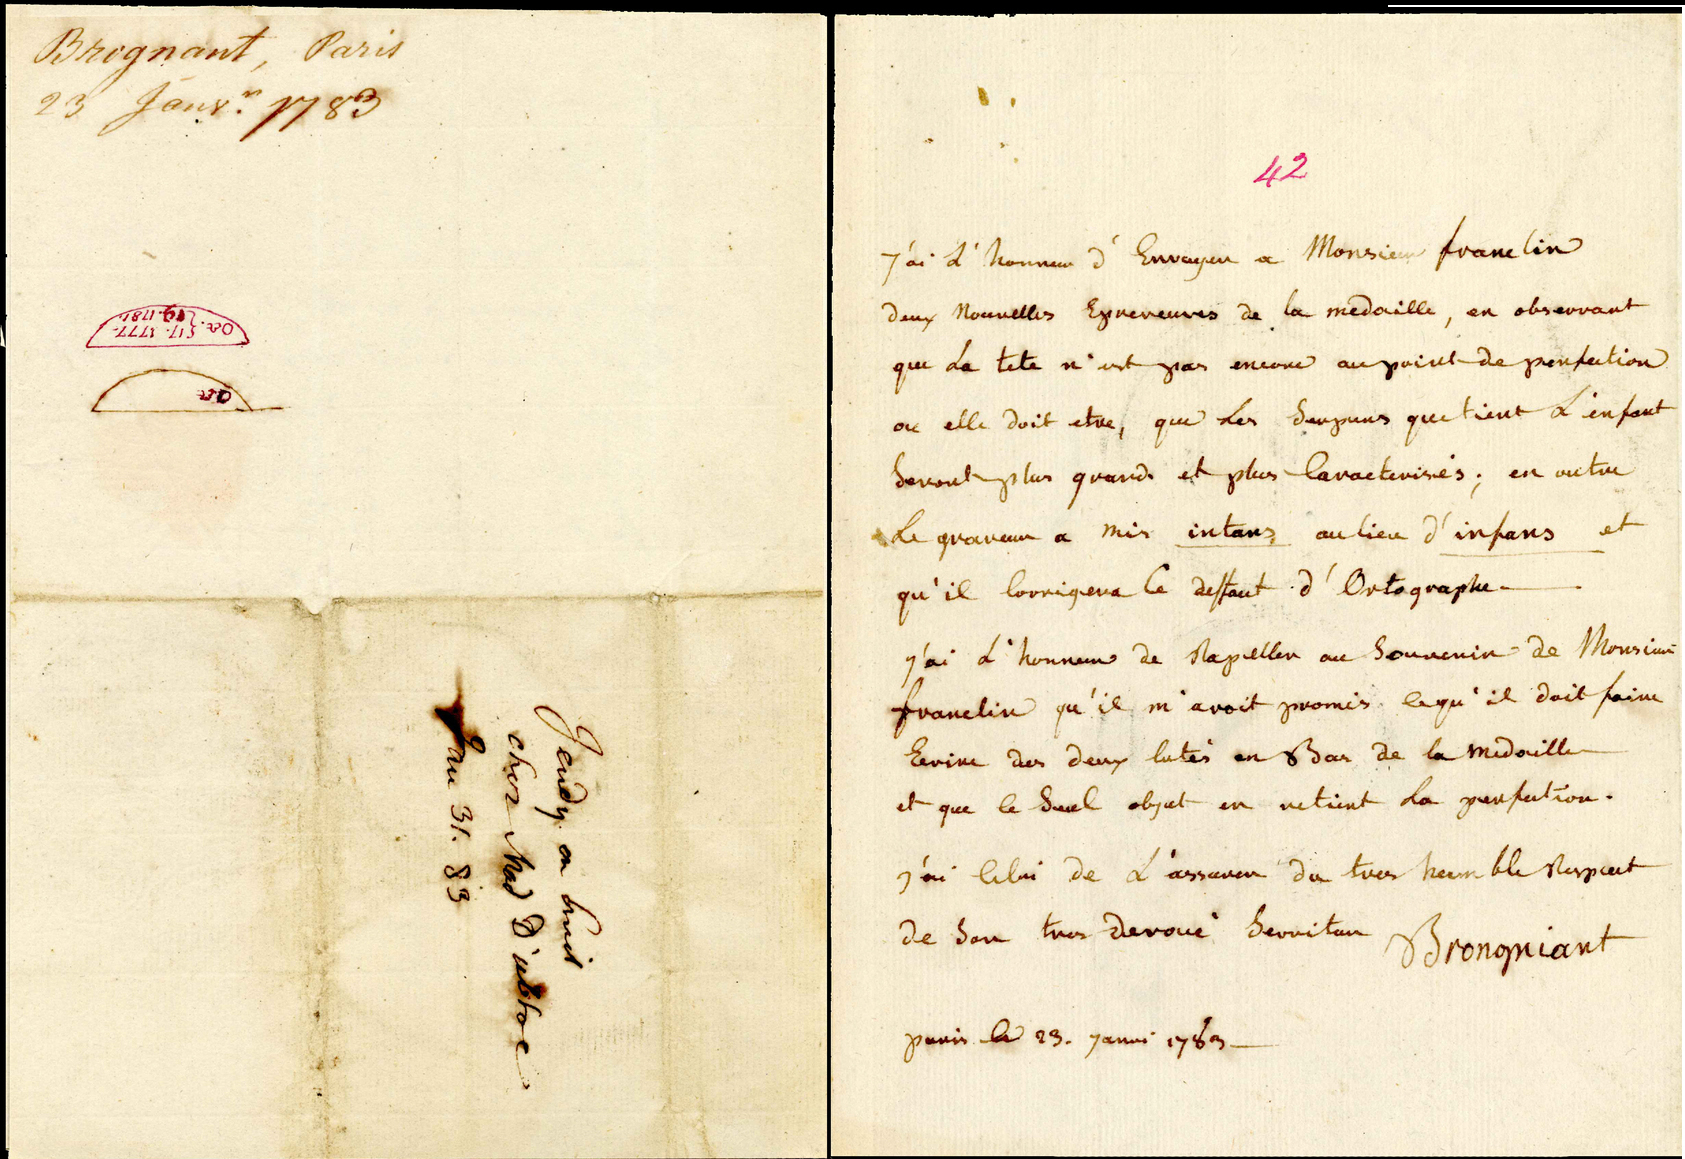 Brognant, Paris
23 Janry. 1783
Oct. 17. 1777.
19. 1781.
Oct
Jeudy en huit
chez Mad D'
Jan 31. 83
42
J'ai L'honneur d'Envoyer a Monsieur franclin
deux Nouvelles Epreveuves de la medaille, en observant
que La tete n'est pas encore au point de perfection
ou elle doit etre, que Les Serpens que tient L'enfant
Seront plus grands et plus Caracterisés; en outre
Le graveur a mis intans au lieu d'infans et
qu'il Corrigera Ce deffaut d'Ortographe
J'ai L'honneur de Rapeller au Souvenir de Monsieur
franclin qu'il m'avoit promis ce qu'il doit faire
Ecrire des deux Cotés en Bas de la medaille
et que ce Seul objet en retient La perfection.
J'ai Celui de L'assurer du tres humble Respect
de Son tres devoué Serviteur Brongniant
paris le 23. Janvi 1783